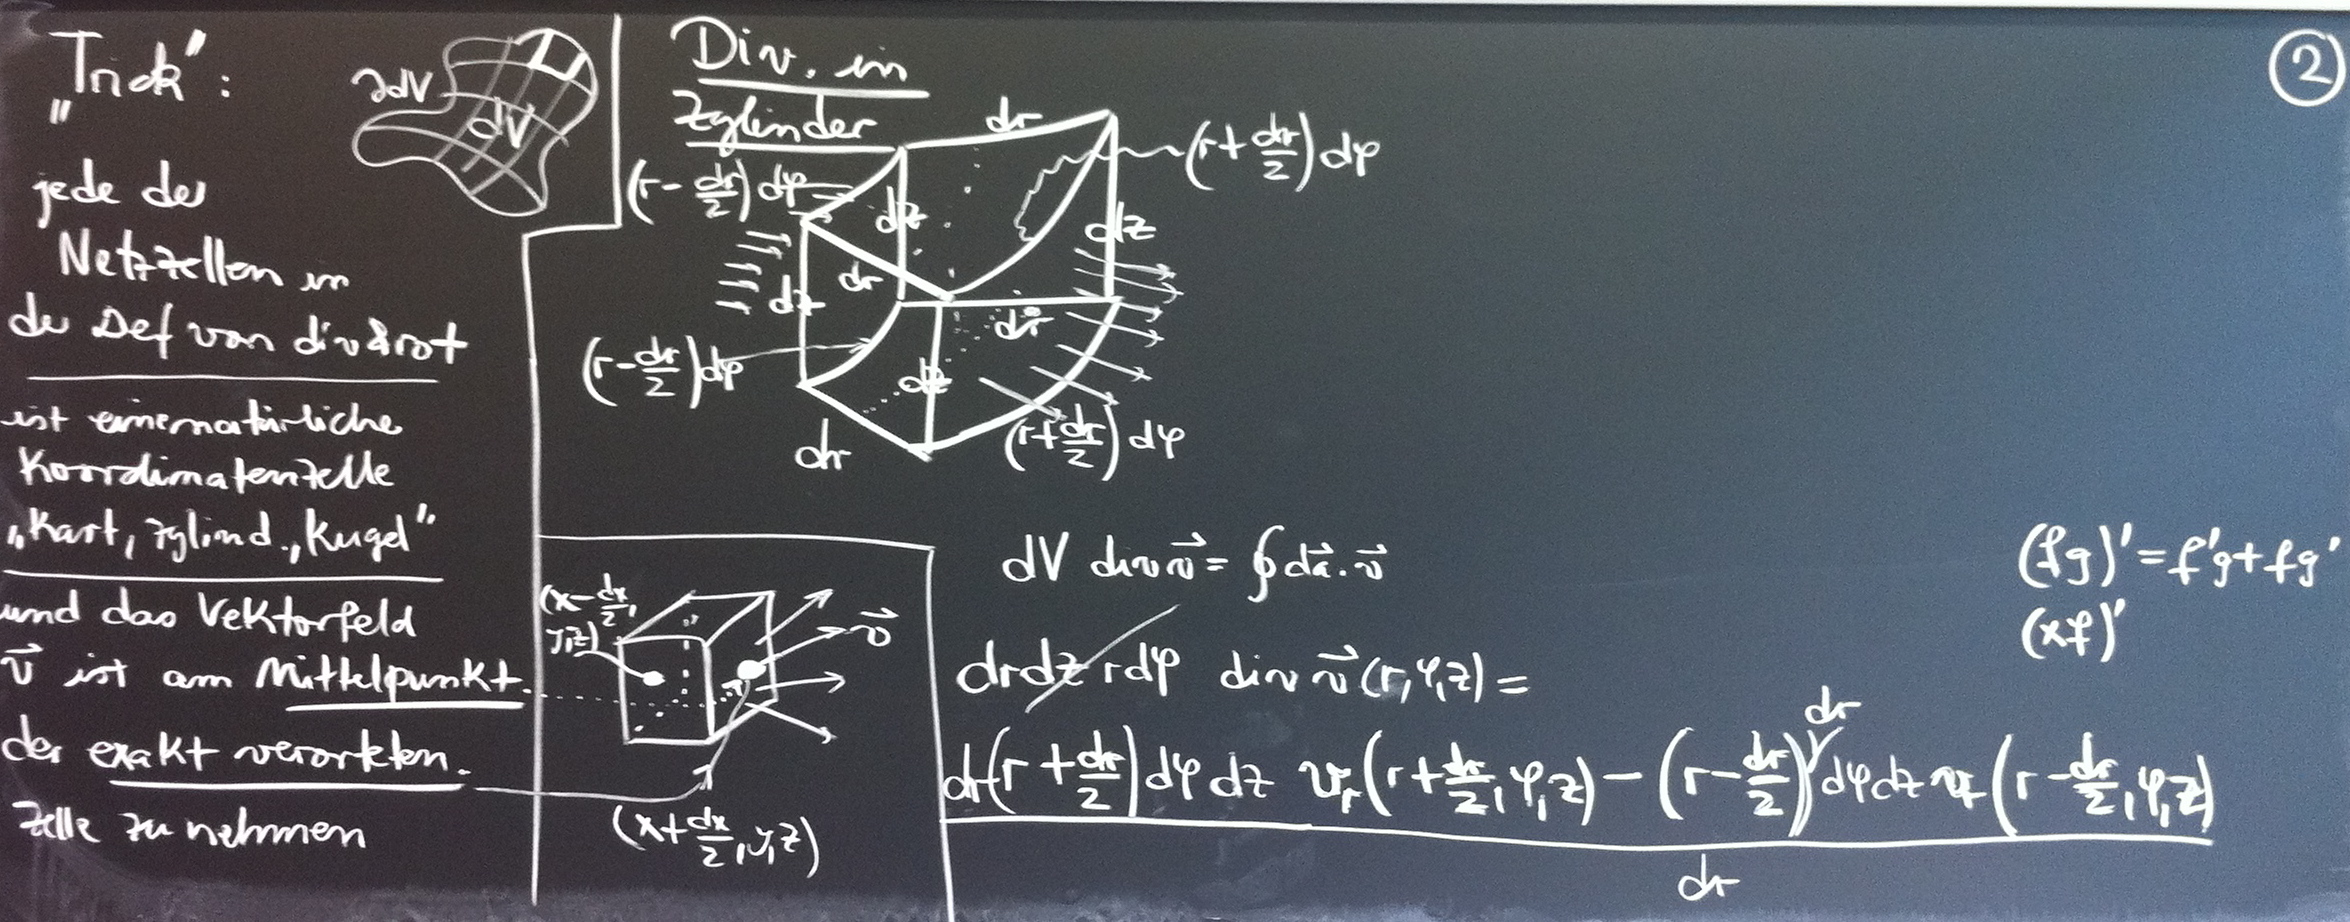 ②
„Trick":
jede der
Netzzellen in
der Def von div & rot
ist eine natürliche
Koordinatenzelle
„Kart, zylind., Kugel"
und das Vektorfeld
v⃗ ist am Mittelpunkt
der exakt verorteten
Zelle zu nehmen
∂dV
dV
Div. in
Zylinder
dr
(r - dr/2) dφ
(r + dr/2) dφ
dz
dz
dr
dz
dr
(r - dr/2) dφ
dz
dr
(r + dr/2) dφ
(x - dx/2,
y, z)
v⃗
(x + dx/2, y, z)
dV div v⃗ = ∮ da⃗ · v⃗
(fg)' = f'g + fg'
(xf)'
dr dz r dφ div v⃗ (r, φ, z) =
dr
dr (r + dr/2) dφ dz v_r (r + dr/2, φ, z) - (r - dr/2) dφ dz v_r (r - dr/2, φ, z)
dr